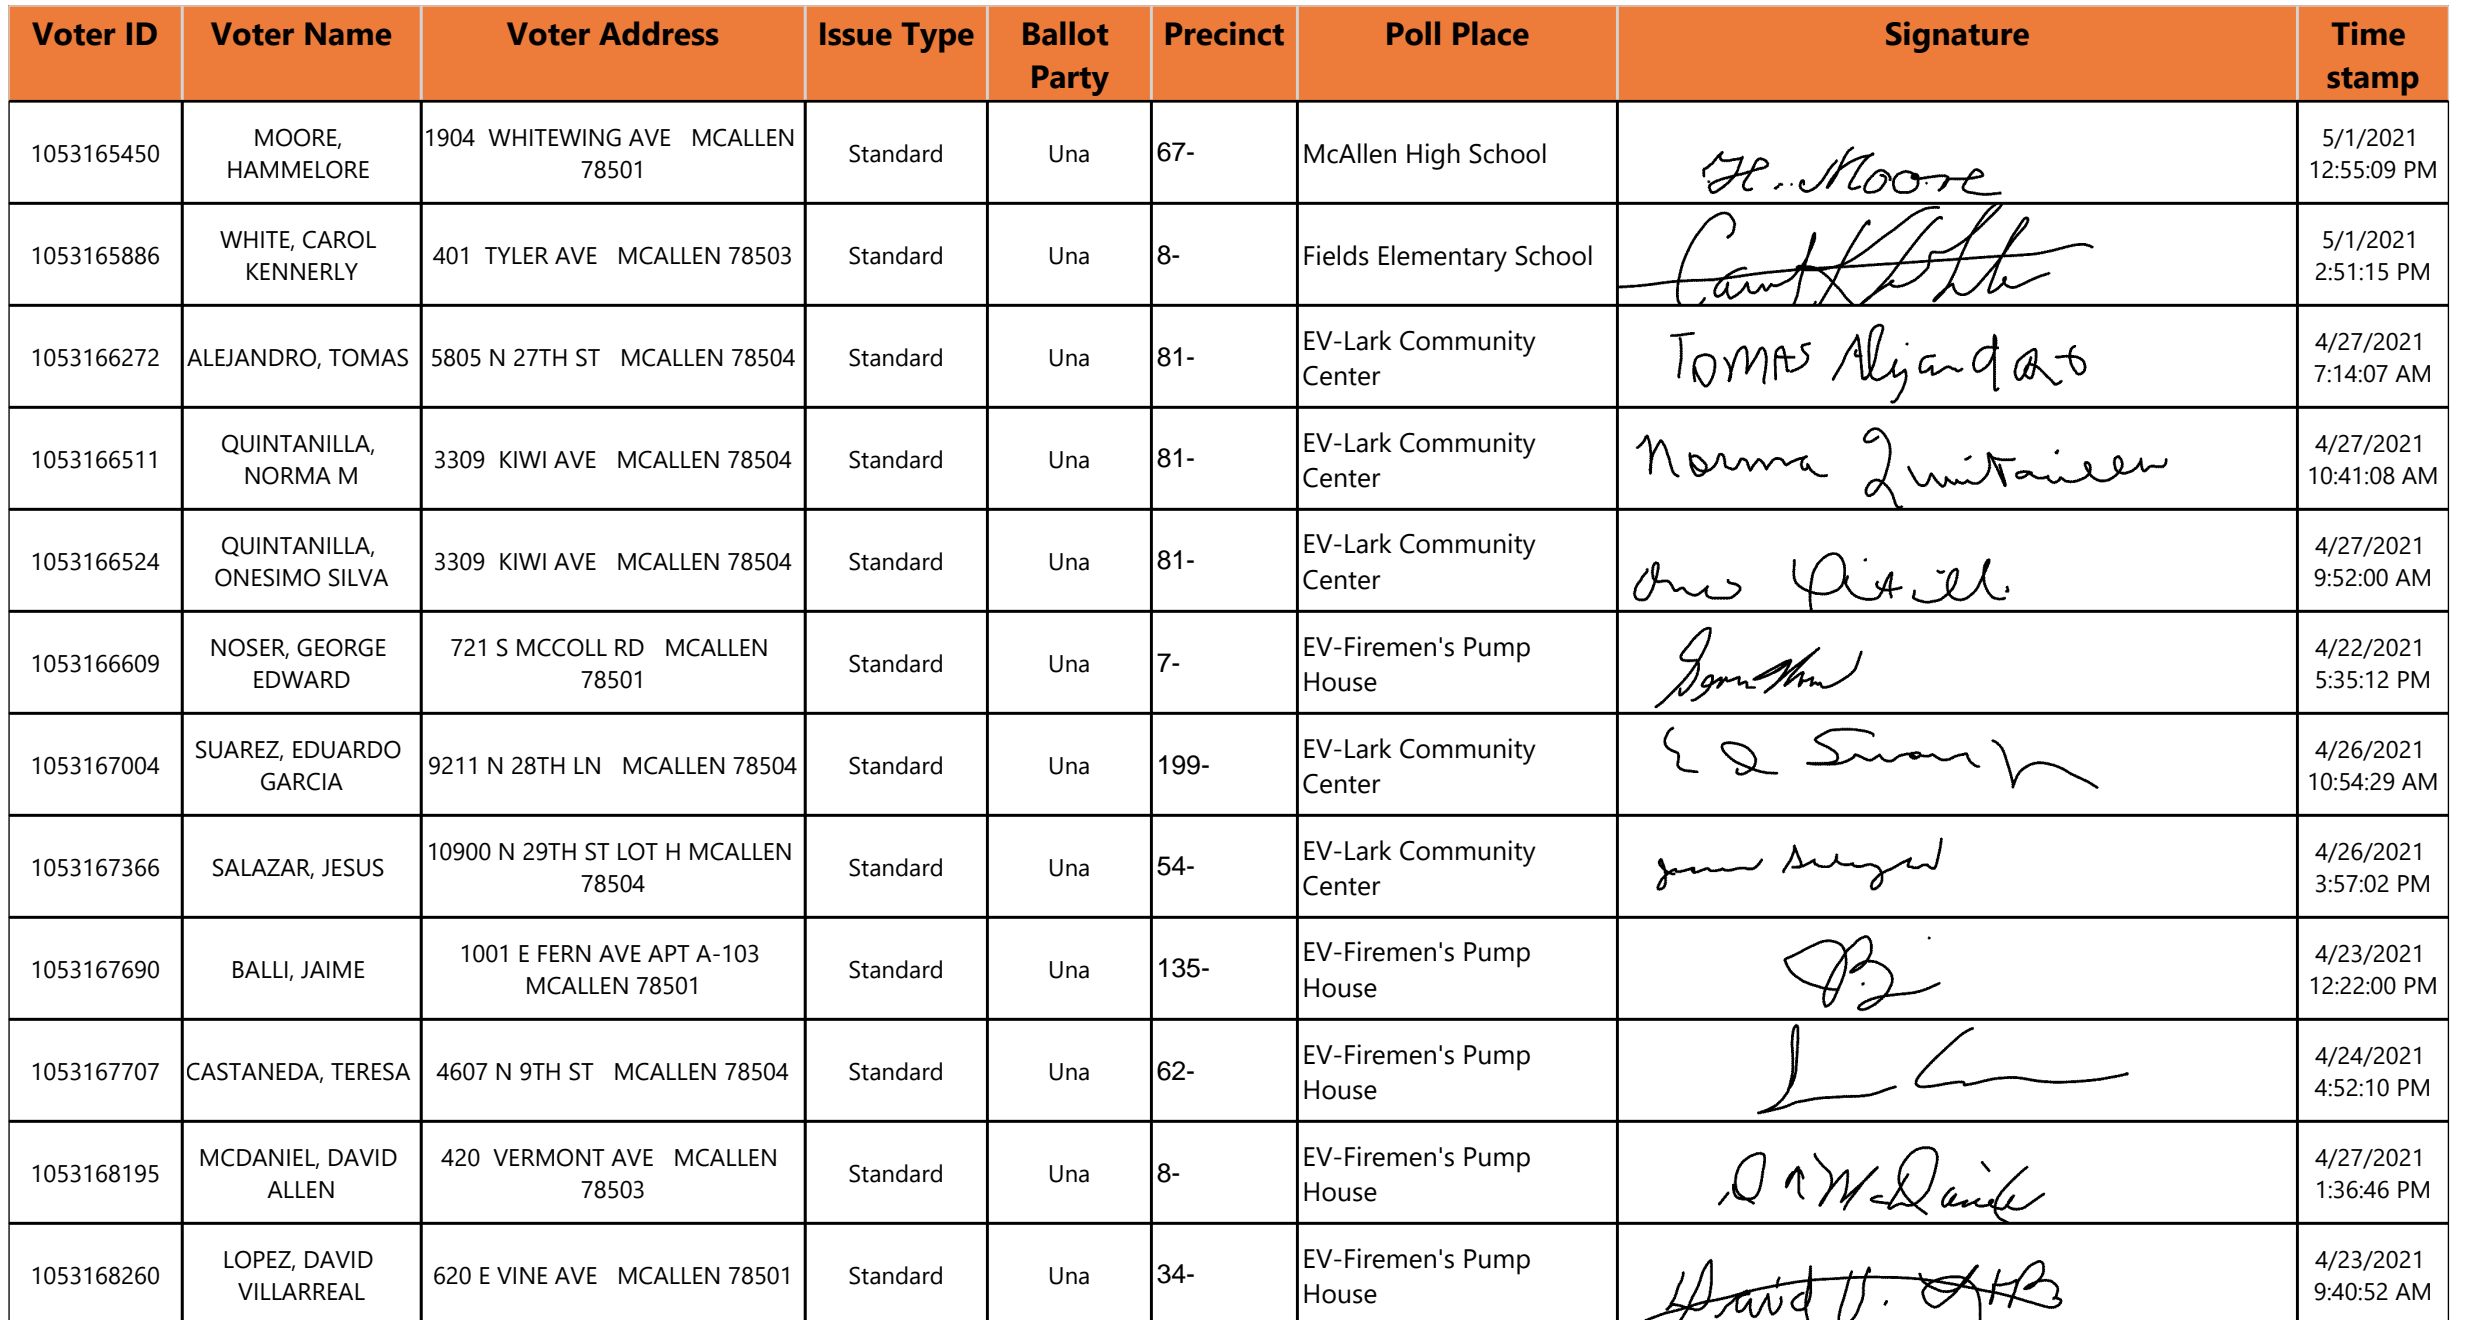 Voter ID Voter Name Voter Address Issue Type Ballot Party Precinct Poll Place Signature Time stamp
1053165450 MOORE, HAMMELORE 1904 WHITEWING AVE MCALLEN 78501 Standard Una 67- McAllen High School H. Moore 5/1/2021 12:55:09 PM
1053165886 WHITE, CAROL KENNERLY 401 TYLER AVE MCALLEN 78503 Standard Una 8- Fields Elementary School 5/1/2021 2:51:15 PM
1053166272 ALEJANDRO, TOMAS 5805 N 27TH ST MCALLEN 78504 Standard Una 81- EV-Lark Community Center TOMAS Alejandro 4/27/2021 7:14:07 AM
1053166511 QUINTANILLA, NORMA M 3309 KIWI AVE MCALLEN 78504 Standard Una 81- EV-Lark Community Center Norma 4/27/2021 10:41:08 AM
1053166524 QUINTANILLA, ONESIMO SILVA 3309 KIWI AVE MCALLEN 78504 Standard Una 81- EV-Lark Community Center 4/27/2021 9:52:00 AM
1053166609 NOSER, GEORGE EDWARD 721 S MCCOLL RD MCALLEN 78501 Standard Una 7- EV-Firemen's Pump House 4/22/2021 5:35:12 PM
1053167004 SUAREZ, EDUARDO GARCIA 9211 N 28TH LN MCALLEN 78504 Standard Una 199- EV-Lark Community Center 4/26/2021 10:54:29 AM
1053167366 SALAZAR, JESUS 10900 N 29TH ST LOT H MCALLEN 78504 Standard Una 54- EV-Lark Community Center 4/26/2021 3:57:02 PM
1053167690 BALLI, JAIME 1001 E FERN AVE APT A-103 MCALLEN 78501 Standard Una 135- EV-Firemen's Pump House 4/23/2021 12:22:00 PM
1053167707 CASTANEDA, TERESA 4607 N 9TH ST MCALLEN 78504 Standard Una 62- EV-Firemen's Pump House 4/24/2021 4:52:10 PM
1053168195 MCDANIEL, DAVID ALLEN 420 VERMONT AVE MCALLEN 78503 Standard Una 8- EV-Firemen's Pump House 4/27/2021 1:36:46 PM
1053168260 LOPEZ, DAVID VILLARREAL 620 E VINE AVE MCALLEN 78501 Standard Una 34- EV-Firemen's Pump House David V. 4/23/2021 9:40:52 AM